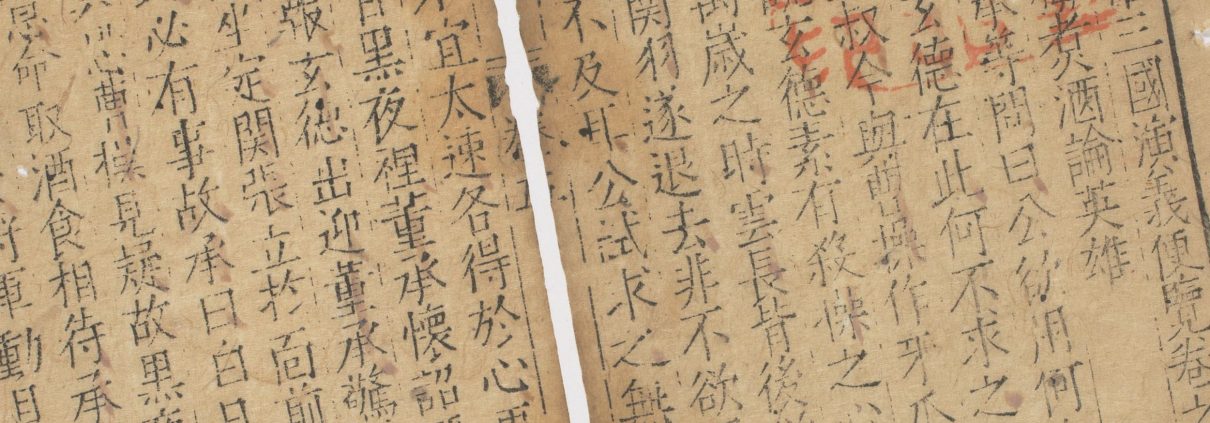 三國演義便覽卷之
煮酒論英雄
承等問曰公欲用何
玄德在此何不求之
叔今與曹操作牙爪
玄德素有殺操之心
萬歲之時雲長背後
關羽遂退去非不欲
不及耳公試求之無
卷五
宜太速各得於心
黑夜裡董承懷詔
張玄德出迎董承驚
坐定關張立於面前
必有事故承曰白日
黃 操見疑故黑夜
命取酒食相待承
將軍動目